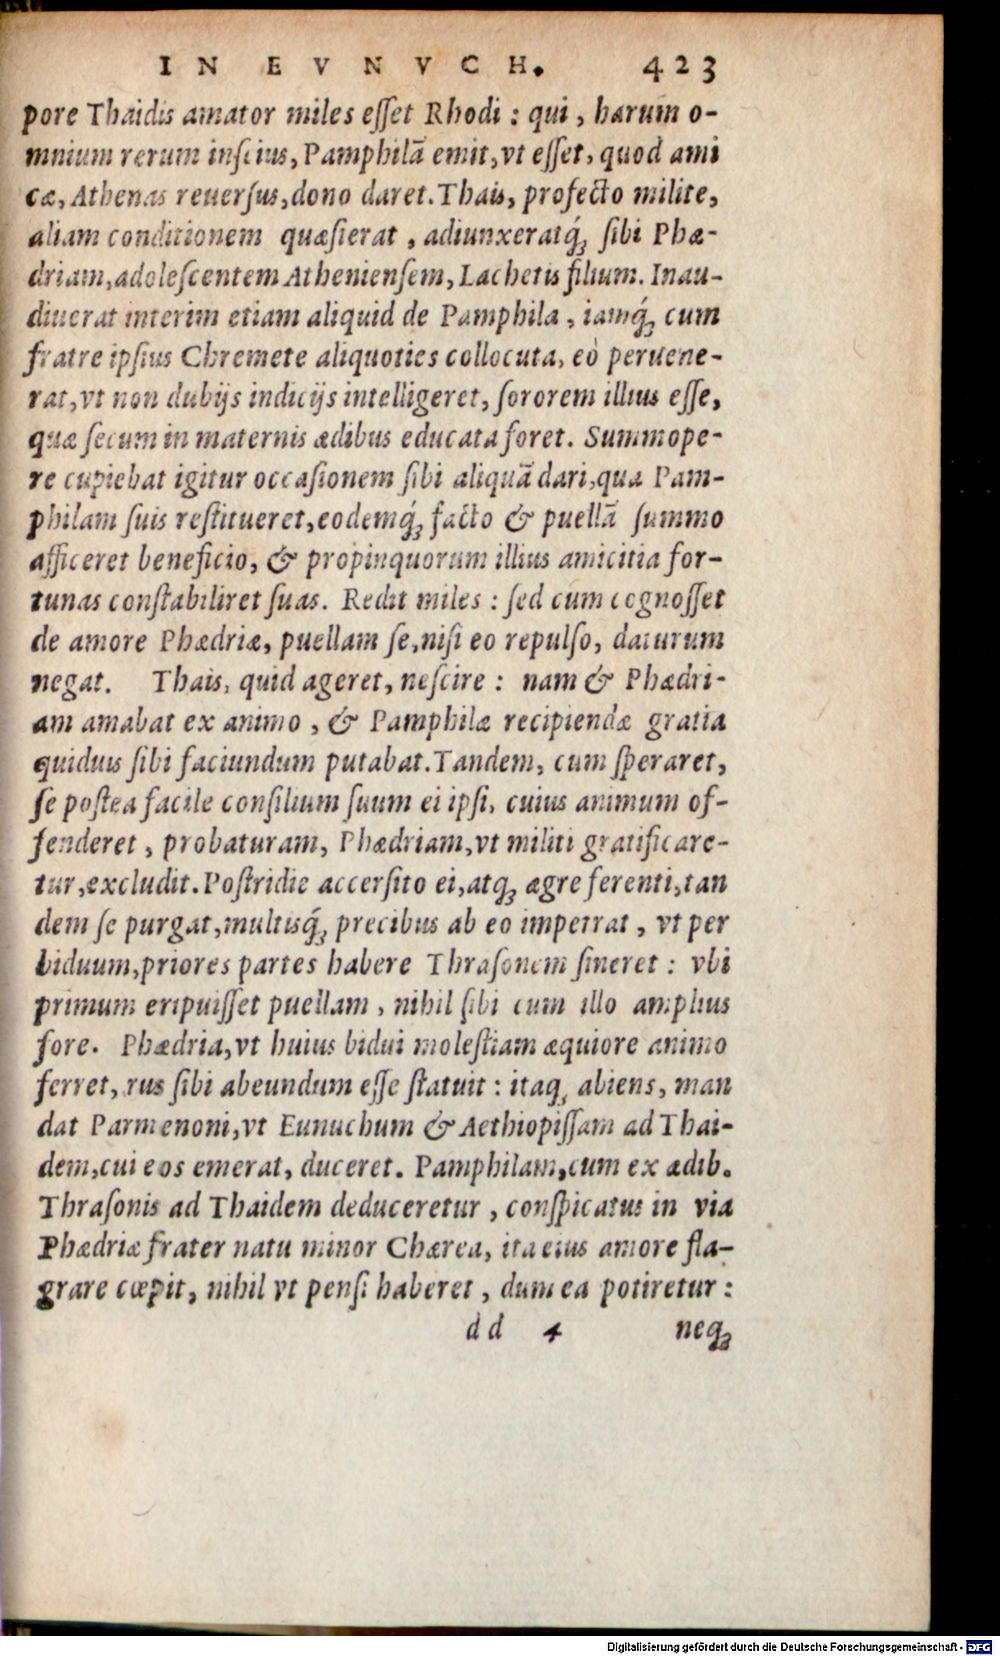 IN EVNVCH. 423
pore Thaidis amator miles eſſet Rhodi : qui , harum o-
mnium rerum inſcius, Pamphilã emit, vt eſſet, quod ami
cæ, Athenas reuerſus, dono daret. Thais, profecto milite,
aliam conditionem quæſierat , adiunxeratq́ꝫ ſibi Phæ-
driam, adoleſcentem Athenienſem, Lachetis filium. Inau-
diuerat interim etiam aliquid de Pamphila , iamq́ꝫ cum
fratre ipſius Chremete aliquoties collocuta, eò peruene-
rat, vt non dubijs indicijs intelligeret, ſororem illius eſſe,
quæ ſecum in maternis ædibus educata foret. Summope-
re cupiebat igitur occaſionem ſibi aliquã dari, qua Pam-
philam ſuis reſtitueret, eodemq́ꝫ facto & puellã ſummo
afficeret beneficio, & propinquorum illius amicitia for-
tunas conſtabiliret ſuas. Redit miles : ſed cum cognoſſet
de amore Phædriæ, puellam ſe, niſi eo repulſo, daturum
negat. Thais, quid ageret, neſcire : nam & Phædri-
am amabat ex animo , & Pamphilæ recipiendæ gratia
quiduis ſibi faciundum putabat. Tandem, cum ſperaret,
ſe poſtea facile conſilium ſuum ei ipſi, cuius animum of-
fenderet , probaturam, Phædriam, vt militi gratificare-
tur, excludit. Poſtridie accerſito ei, atqꝫ ægre ferenti, tan
dem ſe purgat, multisq́ꝫ precibus ab eo impetrat , vt per
biduum, priores partes habere Thraſonem ſineret : vbi
primum eripuiſſet puellam , nihil ſibi cum illo amplius
fore. Phædria, vt huius bidui moleſtiam æquiore animo
ferret, rus ſibi abeundum eſſe ſtatuit : itaqꝫ abiens, man
dat Parmenoni, vt Eunuchum & Aethiopiſſam ad Thai-
dem, cui eos emerat, duceret. Pamphilam, cum ex ædib.
Thraſonis ad Thaidem deduceretur , conſpicatus in via
Phædriæ frater natu minor Chærea, ita eius amore fla-
grare cœpit, nihil vt penſi haberet , dum ea potiretur :
dd 4 neqꝫ
Digitalisierung gefördert durch die Deutsche Forschungsgemeinschaft - DFG